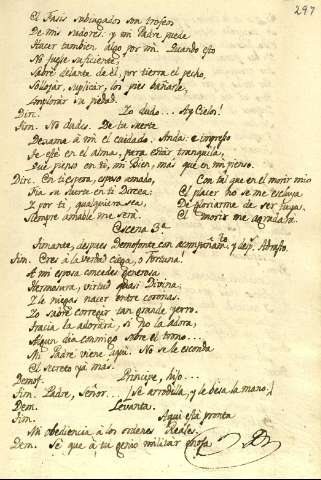 297
El Fasis subiugados son trofeos
De mis sudores: y mi Padre puede
Hacer tambien algo por mi. Quando esto
No fuese suficiente,
Sabré delante de él, por tierra el pecho,
Sollozar, suplicar, los pies bañarle,
Implorar su piedad.
Dirc. Lo dudo... Ay Cielos!
Tim. No dudes. De tu suerte
Dexame á mi el cuidado. Anda: e impreso
Se esté en el alma, para estar tranquila,
Que pienso en tí, mi Bien, más que en mi pienso.
Dirc. En ti espera, esposo amado, Con tal que en el morir mio
Fia su suerte en ti Dircea: El placer no se me excluya
I por ti, qualquiera sea, De gloriarme de ser tuya,
Siempre amable me será. El morir me agradará.
Escena 3ª
Timante, despues Demofonte con acompañamto. y desp. Adrasto.
Tim. Eres á la verdad ciega, o Fortuna!
A mi esposa concedes generosa
Hermosura, virtud quasi Divina;
I le niegas nacer entre coronas.
Yo sabré corregir tan grande yerro.
Tracia la adorára, si yo la adoro,
Algun dia conmigo sobre el trono...
Mi Padre viene aquí. No se le esconda
El secreto ya mas.
Demof. Principe, hijo...
Tim. Padre, Señor... [Se arrodilla, y le besa la mano.]
Dem. Levanta.
Tim. Aqui está pronta
Mi obediencia á los ordenes Reales.
Dem. Sé que á tu genio militar